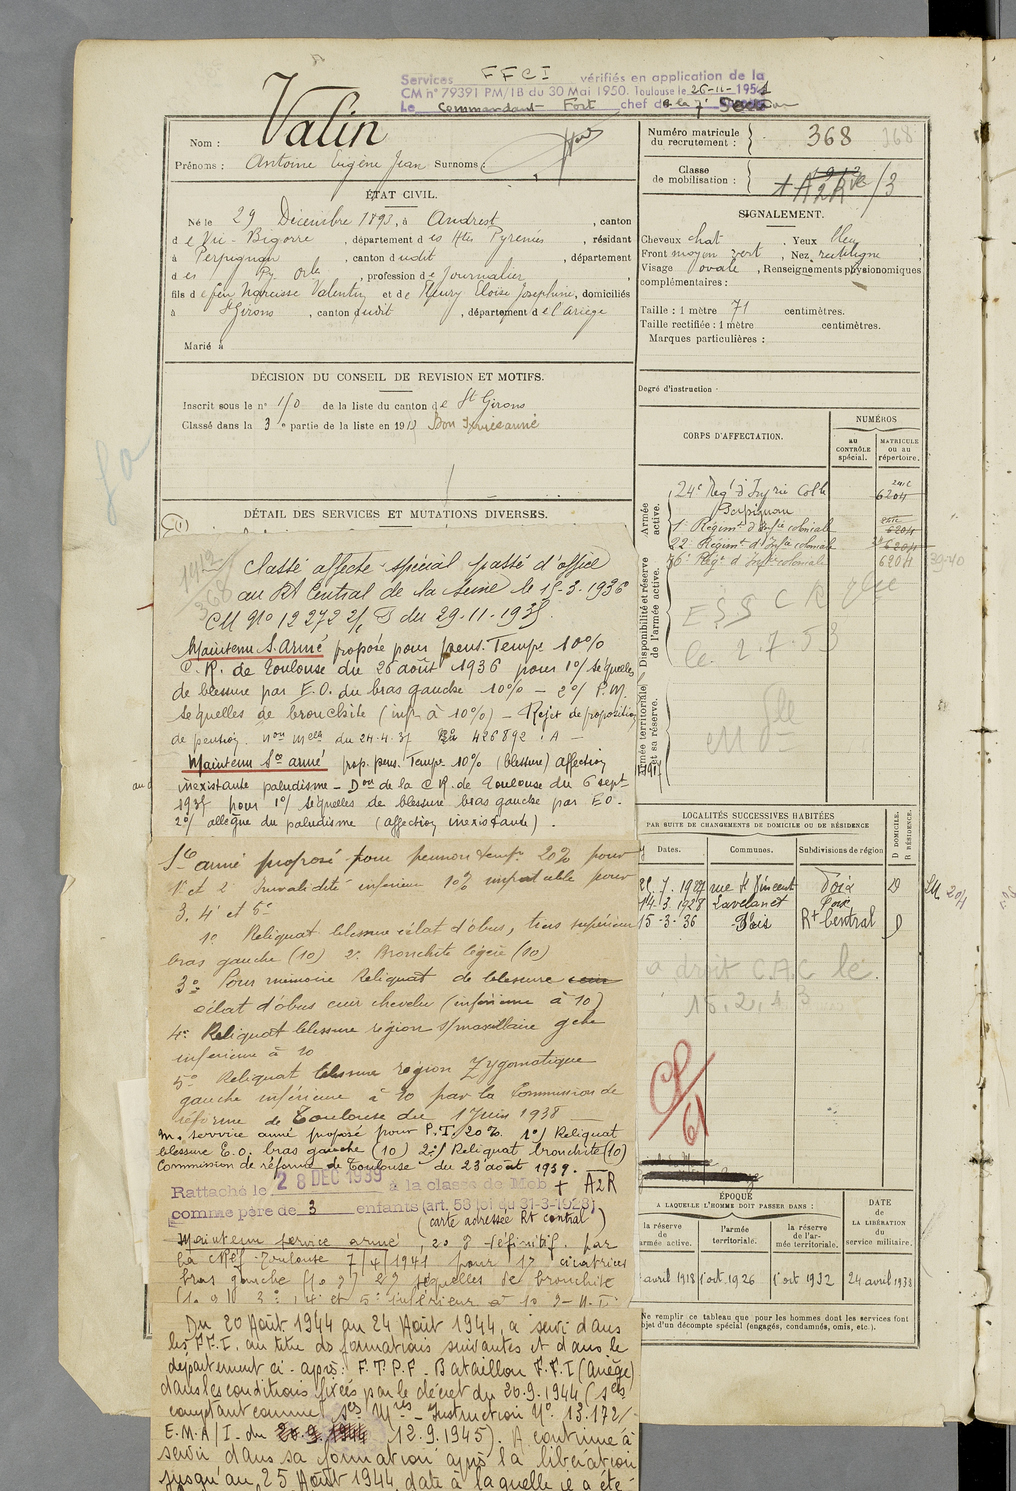 Services FFCI vérifiés en application de la
CM n° 79391 PM/1B du 30 Mai 1950. Toulouse le 26-11-1951
Le Commandant Fort chef de la 7e Section
Nom : Valin
Prénoms : Antoine Eugène Jean Surnoms :
ÉTAT CIVIL.
Né le 29 Décembre 1893, à Andrest, canton
de Vic-Bigorre, département des Htes Pyrénées, résidant
à Perpignan, canton dudit, département
des Py. Orles, profession de Journalier,
fils de feu Narcisse Valentin et de Fleury Eloïse Joséphine, domiciliés
à St Girons, canton dudit, département de l'Ariège
Marié à
DÉCISION DU CONSEIL DE REVISION ET MOTIFS.
Inscrit sous le n° 110 de la liste du canton de St Girons
Classé dans la 3e partie de la liste en 1913 Bon service armé
DÉTAIL DES SERVICES ET MUTATIONS DIVERSES.
(1)
1912
368
Classé affecté spécial passé d'office
au Rt Central de la Seine le 15-3-1936
CM N° 12272 2/ D du 29.11.1935.
Maintenu S. Armé proposé pour pens. Tempe 10%
C.R. de Toulouse du 26 août 1936 pour 1°/ séquelles
de blessure par E.O. du bras gauche 10% - 2°/ P.M.
séquelles de bronchite (inf. à 10%) - Rejet de proposition
de pension. Non melle du 24.4.37 426892 A -
Maintenu Sce armé prop. pens. Tempe 10% (blessure) affection
inexistante paludisme - Don de la C.R. de Toulouse du 6 sept
1937 pour 1°/ séquelles de blessure bras gauche par E.O.
2°/ allègue du paludisme (affection inexistante).
Sce armé proposé pour pension temp. 20% pour
1° et 2° Invalidité inférieure 10% imputable pour
3. 4 et 5°
1° Reliquat blessure éclat d'obus, tiers supérieur
bras gauche (10) 2° Bronchite légère (10)
3° Pour mémoire Reliquat de blessure cuir
éclat d'obus cuir chevelu (inférieure à 10)
4° Reliquat blessure région s/maxillaire gche
inférieure à 10
5° Reliquat blessure région Zygomatique
gauche inférieure à 10 par la Commission de
réforme de Toulouse du 1 Juin 1938
M. service armé proposé pour P.T. 20%. 1°/ Reliquat
blessure E.O. bras gauche (10) 2°/ Reliquat bronchite (10)
Commission de réforme de Toulouse du 23 août 1939.
Rattaché le 28 DEC 1939 à la classe de Mob + A2R
comme père de 3 enfants (art. 58 loi du 31-3-1928)
(carte adressée Rt central)
Maintenu service armé, 20 % définitif. par
la CRéf. Toulouse 7/4/1941 pour 1° cicatrices
bras gauche (10%) et 2° séquelles de bronchite
(10%) 3°, 4° et 5° inférieur à 10
Du 20 Août 1944 au 24 Août 1944, a servi dans
les F.F.I. au titre des formations suivantes et dans le
département ci-après: F.T.P.F. Bataillon F.F.I (Ariège)
dans les conditions fixées par le décret du 20.9.1944 (scts
comptant comme scs Mres - Instruction N° 13.172/
E.M.A/I. du 20.9.1944 12.9.1945). A continué à
servir dans sa formation après la libération
jusqu'au 25 Août 1944, date à laquelle il a été
Numéro matricule
du recrutement : 368
368
Classe
de mobilisation : 1912
+ A2R /3
SIGNALEMENT.
Cheveux chat. Yeux bleu,
Front moyen vert, Nez rectiligne,
Visage ovale, Renseignements physionomiques
complémentaires :
Taille : 1 mètre 71 centimètres.
Taille rectifiée : 1 mètre centimètres.
Marques particulières :
Degré d'instruction ·
CORPS D'AFFECTATION.
NUMÉROS
AU CONTRÔLE spécial.
MATRICULE ou au répertoire.
Armée active.
24e Régt d'Infrie Colle 6204
Perpignan
1 Régimt d'Infie coloniale 6204
22e Régimt d'Infie coloniale 6204
Régt d'Infie coloniale 6204
39-40
Disponibilité et réserve de l'armée active.
ESS CR
le 2.7.53
Armée territoriale et sa réserve.
LOCALITÉS SUCCESSIVES HABITÉES
PAR SUITE DE CHANGEMENTS DE DOMICILE OU DE RÉSIDENCE
Dates. Communes. Subdivisions de région
D DOMICILE. R RÉSIDENCE.
21.7.1927 rue St Vincent Foix D
14.3.1928 Lavelanet Foix
15-3-36 Paris Rt Central D
a droit C.A.C le.
15.2.43
CP/61
ÉPOQUE
A LAQUELLE L'HOMME DOIT PASSER DANS :
la réserve de l'armée active.
l'armée territoriale.
la réserve de l'armée territoriale.
DATE DE LA LIBÉRATION du service militaire.
avril 1918 1 oct 1926 1 oct 1932 24 avril 1938
Ne remplir ce tableau que pour les hommes dont les services font
objet d'un décompte spécial (engagés, condamnés, omis, etc.).